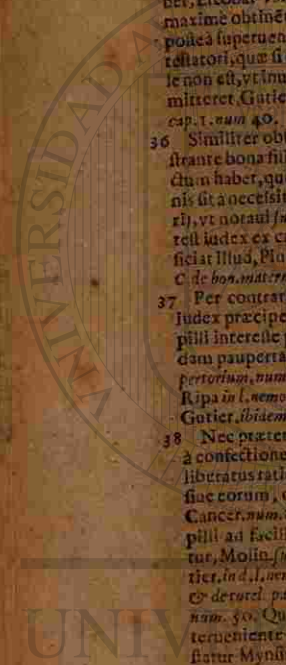 ber, Escobar
maximè obtinê
posteà superuen
testatori, quæ si
le non est, vt inu
mitteret, Gutier
cap. 1. num 40.
36 Similiter ob
strante bona fili
ctum habet, qu
nis sit à necessit
rij, vt notaui
test iudex ex c
ficiat illud, Plu
C de bon. matern
37 Per contrar
Iudex præcipe
pilli interesse
dam pauperta
pertorium, num
Ripa in l. nemo
Gutier. ibidem
38 Nec præter
à confectione
liberatus rati
siue eorum,
Cancer. num.
pilli ad facil
tur, Molin.
tier. in d. l. nem
& de tutel. p
num. 50. Qu
terueniente
statur Mynsi
UNIVERSI
UNIV